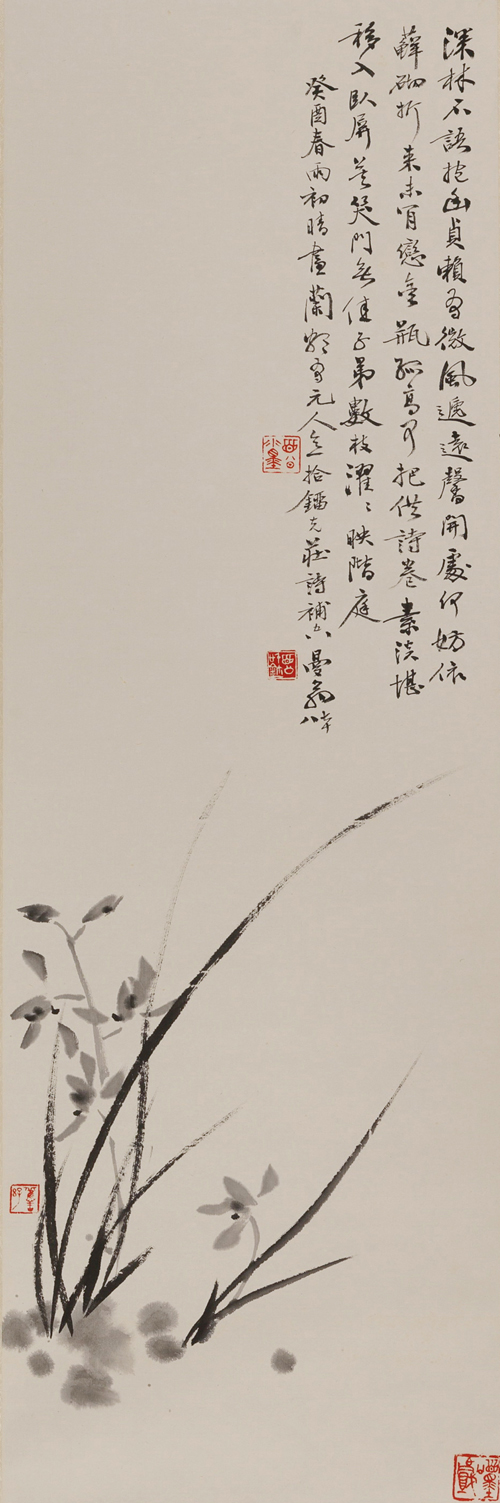 深林不語抱幽貞賴有微風遞遠馨開處何妨依
蘚砌折來未肯戀金瓶孤高可把供詩卷素淡堪
移入臥屏莫笑門無佳子弟數枝濯〻映階庭
癸酉春雨初晴畫蘭頗有元人意拾鎦克莊詩補曼翁